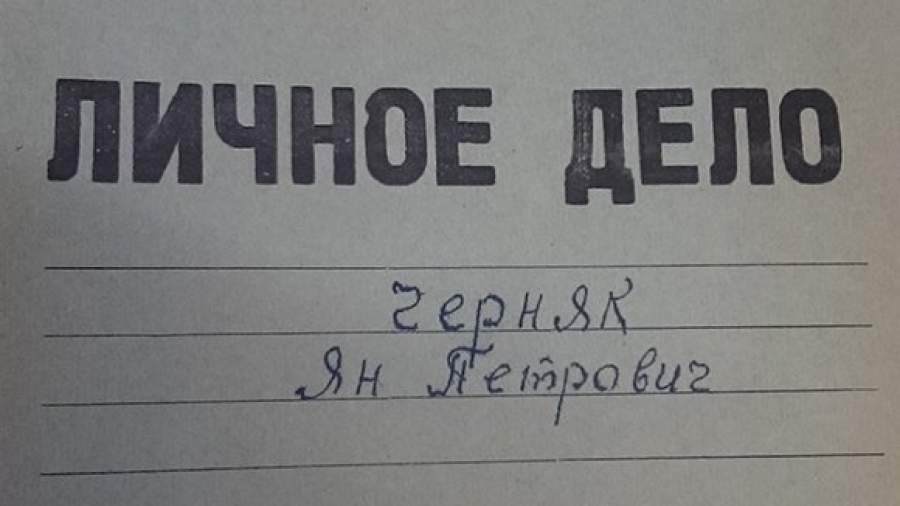 ЛИЧНОЕ ДЕЛО
Черняк
Ян Петрович